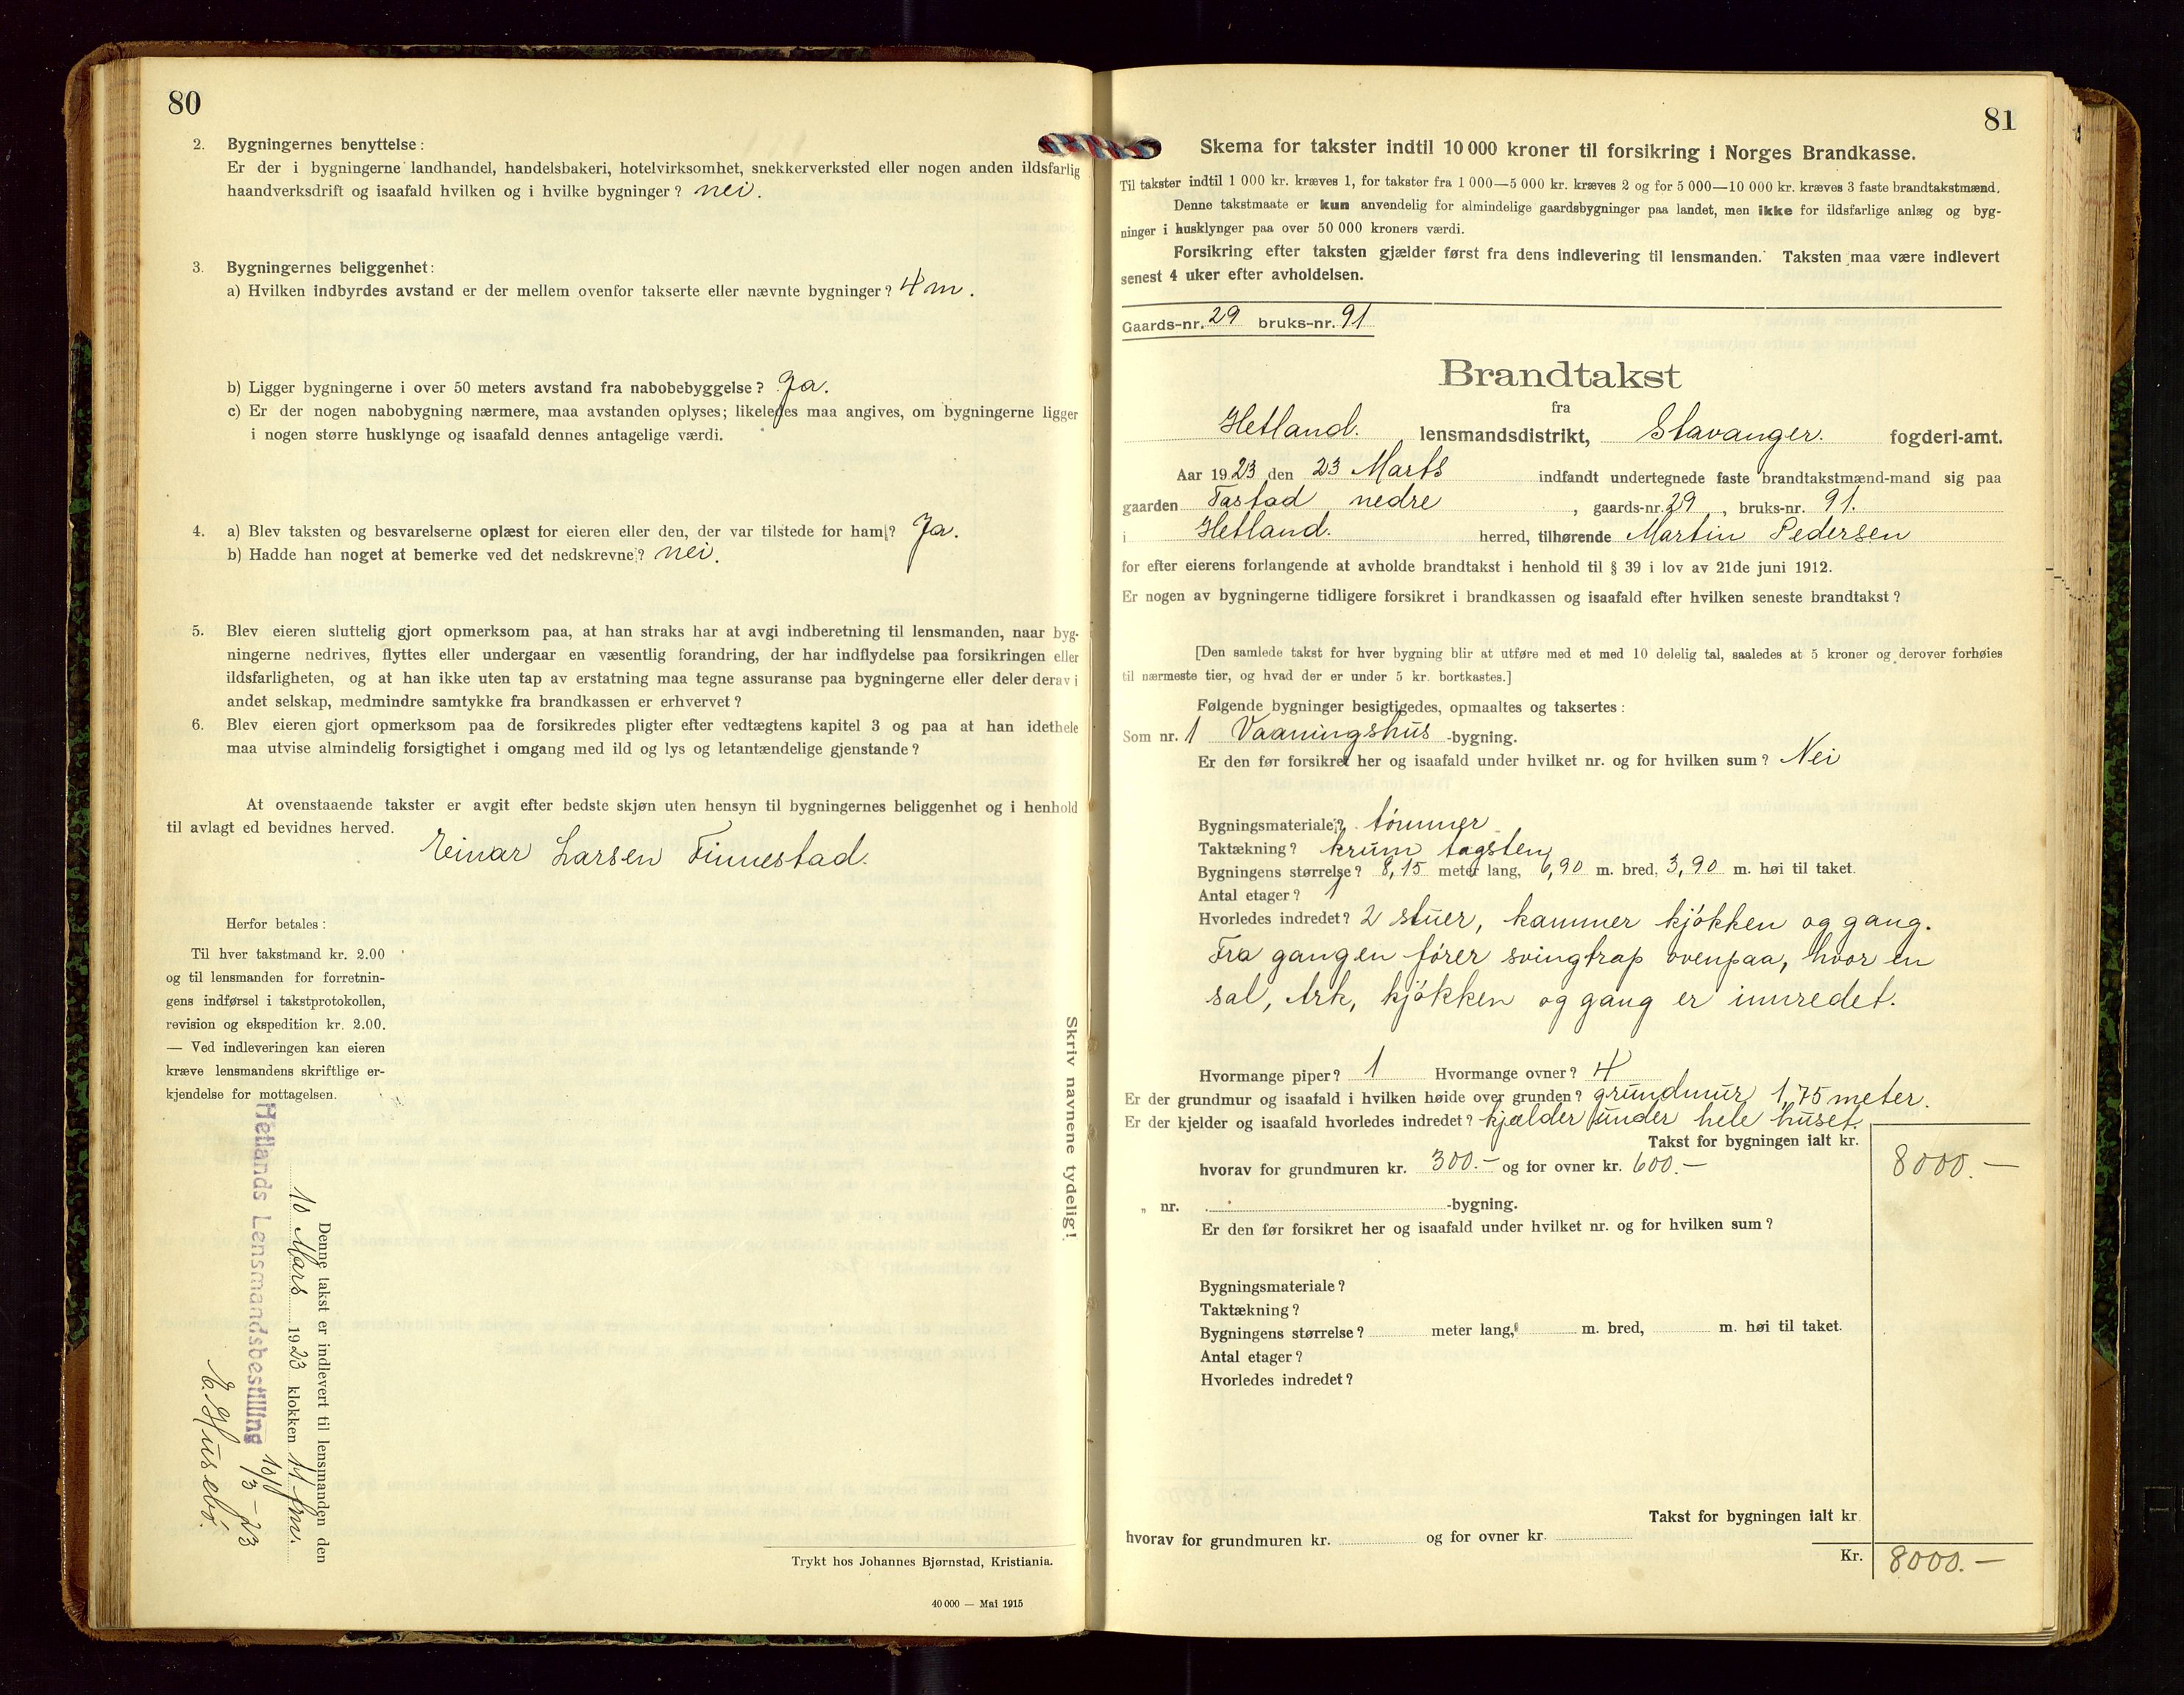 80
2. Bygningernes benyttelse:
Er der i bygningerne landhandel, handelsbakeri, hotelvirksomhet, snekkerverksted eller nogen anden ildsfarlig
haandverksdrift og isaafald hvilken og i hvilke bygninger? nei.
3. Bygningernes beliggenhet:
a) Hvilken indbyrdes avstand er der mellem ovenfor takserte eller nævnte bygninger? 4 m.
b) Ligger bygningerne i over 50 meters avstand fra nabobebyggelse? Ja.
c) Er der nogen nabobygning nærmere, maa avstanden oplyses; likeledes maa angives, om bygningerne ligger
i nogen større husklynge og isaafald dennes antagelige værdi.
4. a) Blev taksten og besvarelserne oplæst for eieren eller den, der var tilstede for ham? Ja.
b) Hadde han noget at bemerke ved det nedskrevne? nei.
5. Blev eieren sluttelig gjort opmerksom paa, at han straks har at avgi indberetning til lensmanden, naar byg-
ningerne nedrives, flyttes eller undergaar en væsentlig forandring, der har indflydelse paa forsikringen eller
ildsfarligheten, og at han ikke uten tap av erstatning maa tegne assuranse paa bygningerne eller deler derav i
andet selskap, medmindre samtykke fra brandkassen er erhvervet?
6. Blev eieren gjort opmerksom paa de forsikredes pligter efter vedtægtens kapitel 3 og paa at han idethele
maa utvise almindelig forsigtighet i omgang med ild og lys og letantændelige gjenstande?
At ovenstaaende takster er avgit efter bedste skjøn uten hensyn til bygningernes beliggenhet og i henhold
til avlagt ed bevidnes herved.
Einar Larsen Finnestad.
Herfor betales:
Til hver takstmand kr. 2.00
og til lensmanden for forretnin-
gens indførsel i takstprotokollen,
revision og ekspedition kr. 2.00.
— Ved indleveringen kan eieren
kræve lensmandens skriftlige er-
kjendelse for mottagelsen.
Skriv navnene tydelig!
Denne takst er indlevert til lensmanden den
10 Mars 1923 klokken 11 fm.
Hetlands Lensmandsbestilling 10/3-23
E. Husebø.
Trykt hos Johannes Bjørnstad, Kristiania.
40 000 — Mai 1915
81
Skema for takster indtil 10 000 kroner til forsikring i Norges Brandkasse.
Til takster indtil 1 000 kr. kræves 1, for takster fra 1 000—5 000 kr. kræves 2 og for 5 000—10 000 kr. kræves 3 faste brandtakstmænd.
Denne takstmaate er kun anvendelig for almindelige gaardsbygninger paa landet, men ikke for ildsfarlige anlæg og byg-
ninger i husklynger paa over 50 000 kroners værdi.
Forsikring efter taksten gjælder først fra dens indlevering til lensmanden. Taksten maa være indlevert
senest 4 uker efter avholdelsen.
Gaards-nr. 29 bruks-nr. 91
Brandtakst
fra
Hetland. lensmandsdistrikt, Stavanger. fogderi-amt.
Aar 1923 den 23 Marts indfandt undertegnede faste brandtakstmænd-mand sig paa
gaarden Tastad nedre, gaards-nr. 29, bruks-nr. 91.
i Hetland. herred, tilhørende Martin Pedersen
for efter eierens forlangende at avholde brandtakst i henhold til § 39 i lov av 21de juni 1912.
Er nogen av bygningerne tidligere forsikret i brandkassen og isaafald efter hvilken seneste brandtakst?
[Den samlede takst for hver bygning blir at utføre med et med 10 delelig tal, saaledes at 5 kroner og derover forhøies
til nærmeste tier, og hvad der er under 5 kr. bortkastes.]
Følgende bygninger besigtigedes, opmaaltes og taksertes:
Som nr. 1 Vaaningshus -bygning.
Er den før forsikret her og isaafald under hvilket nr. og for hvilken sum? Nei
Bygningsmateriale? tømmer
Taktækning? krum tagsten
Bygningens størrelse? 8,15 meter lang, 6,90 m. bred, 3,90 m. høi til taket.
Antal etager? 1
Hvorledes indredet? 2 stuer, kammer kjøkken og gang.
Fra gangen fører svingtrap ovenpaa, hvor en
sal, Ark, kjøkken og gang er innredet.
Hvormange piper? 1 Hvormange ovner? 4
Er der grundmur og isaafald i hvilken høide over grunden? grundmur 1,75 meter.
Er der kjelder og isaafald hvorledes indredet? kjælder under hele huset.
Takst for bygningen ialt kr. 8000.-
hvorav for grundmuren kr. 300.- og for ovner kr. 600.-
„ nr. -bygning.
Er den før forsikret her og isaafald under hvilket nr. og for hvilken sum?
Bygningsmateriale?
Taktækning?
Bygningens størrelse? meter lang, m. bred, m. høi til taket.
Antal etager?
Hvorledes indredet?
Takst for bygningen ialt kr.
hvorav for grundmuren kr. og for ovner kr.
Kr. 8000.-